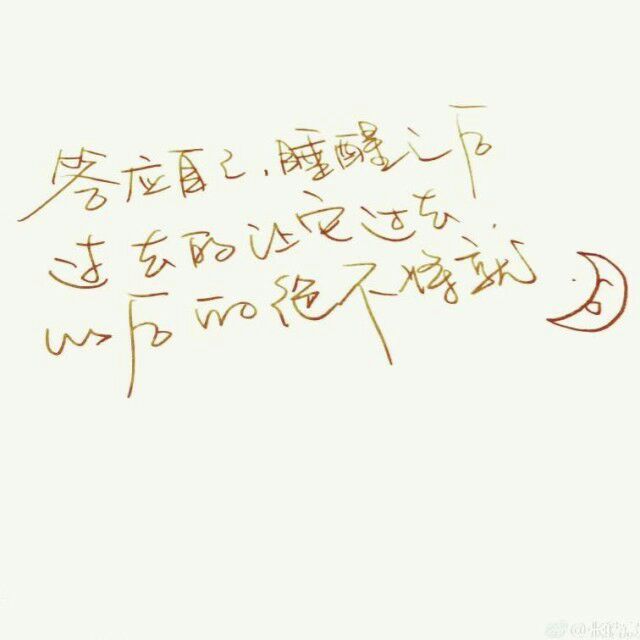 答应自己,睡醒之后
过去的让它过去.
以后的绝不将就